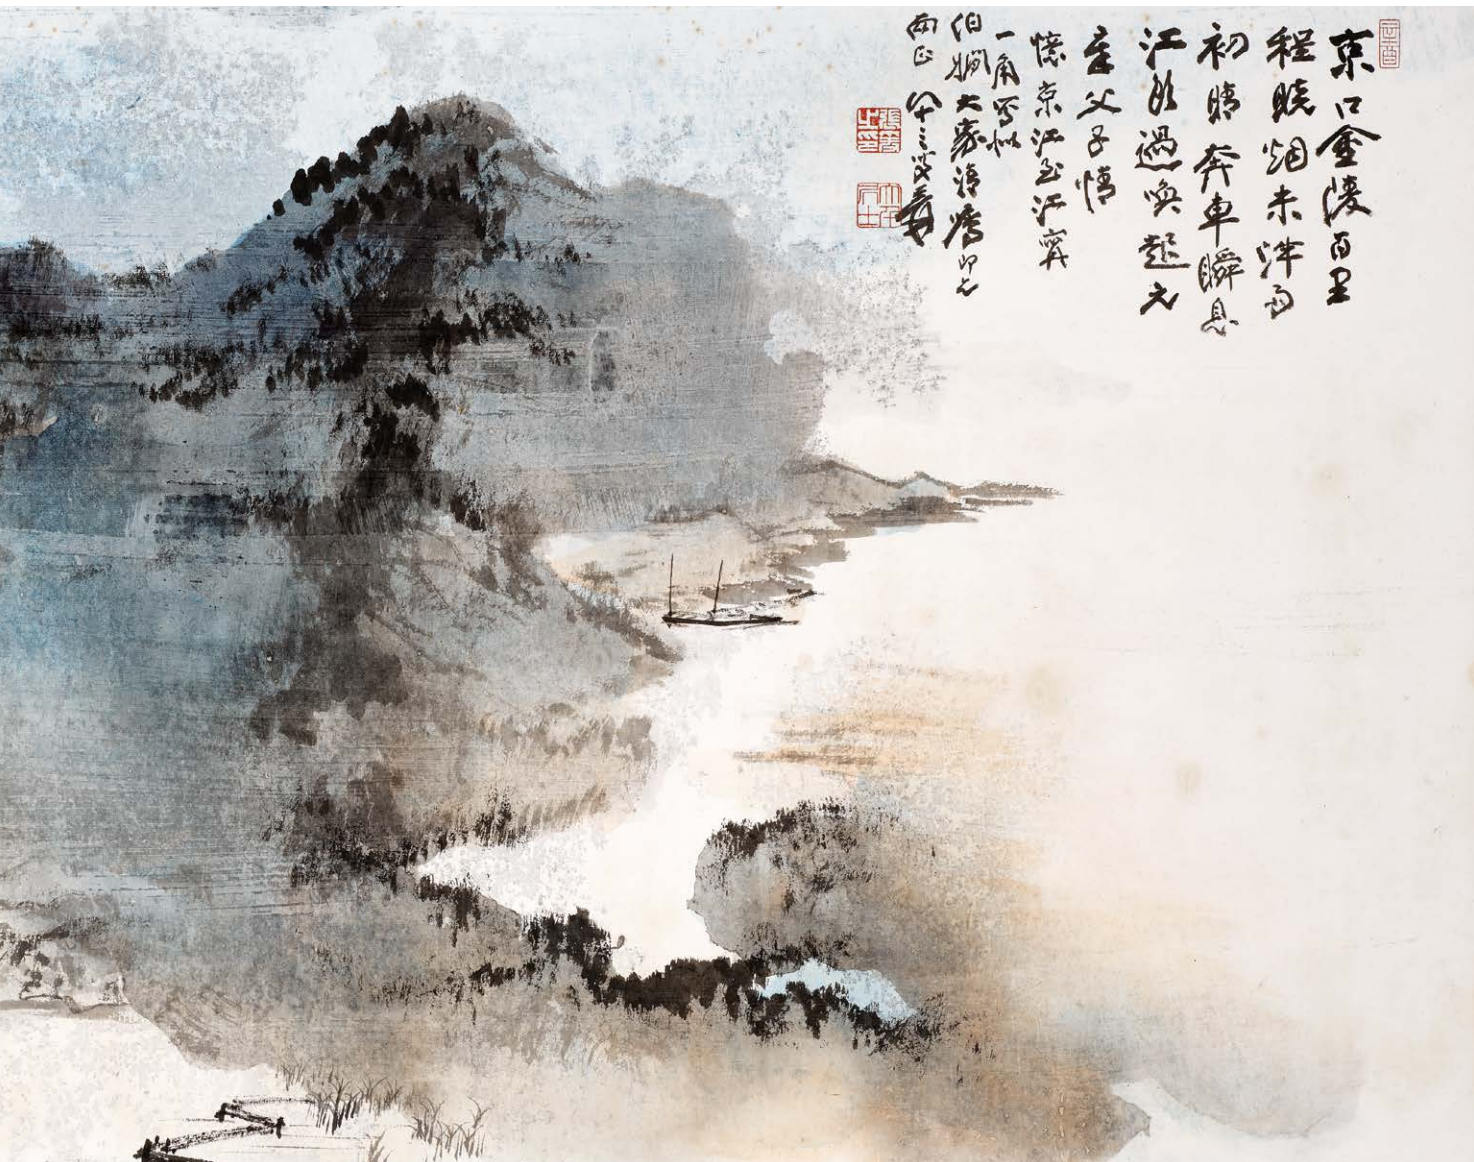 辛酉
京口金陵百里
程曉烟未泮雨
初晴奔車瞬息
江頭過喚起元
章父子情
憶京江至江寧
一角寫似
伯嫻大家清 即乞
兩正 八十三叟爰
張爰之印
大千居士